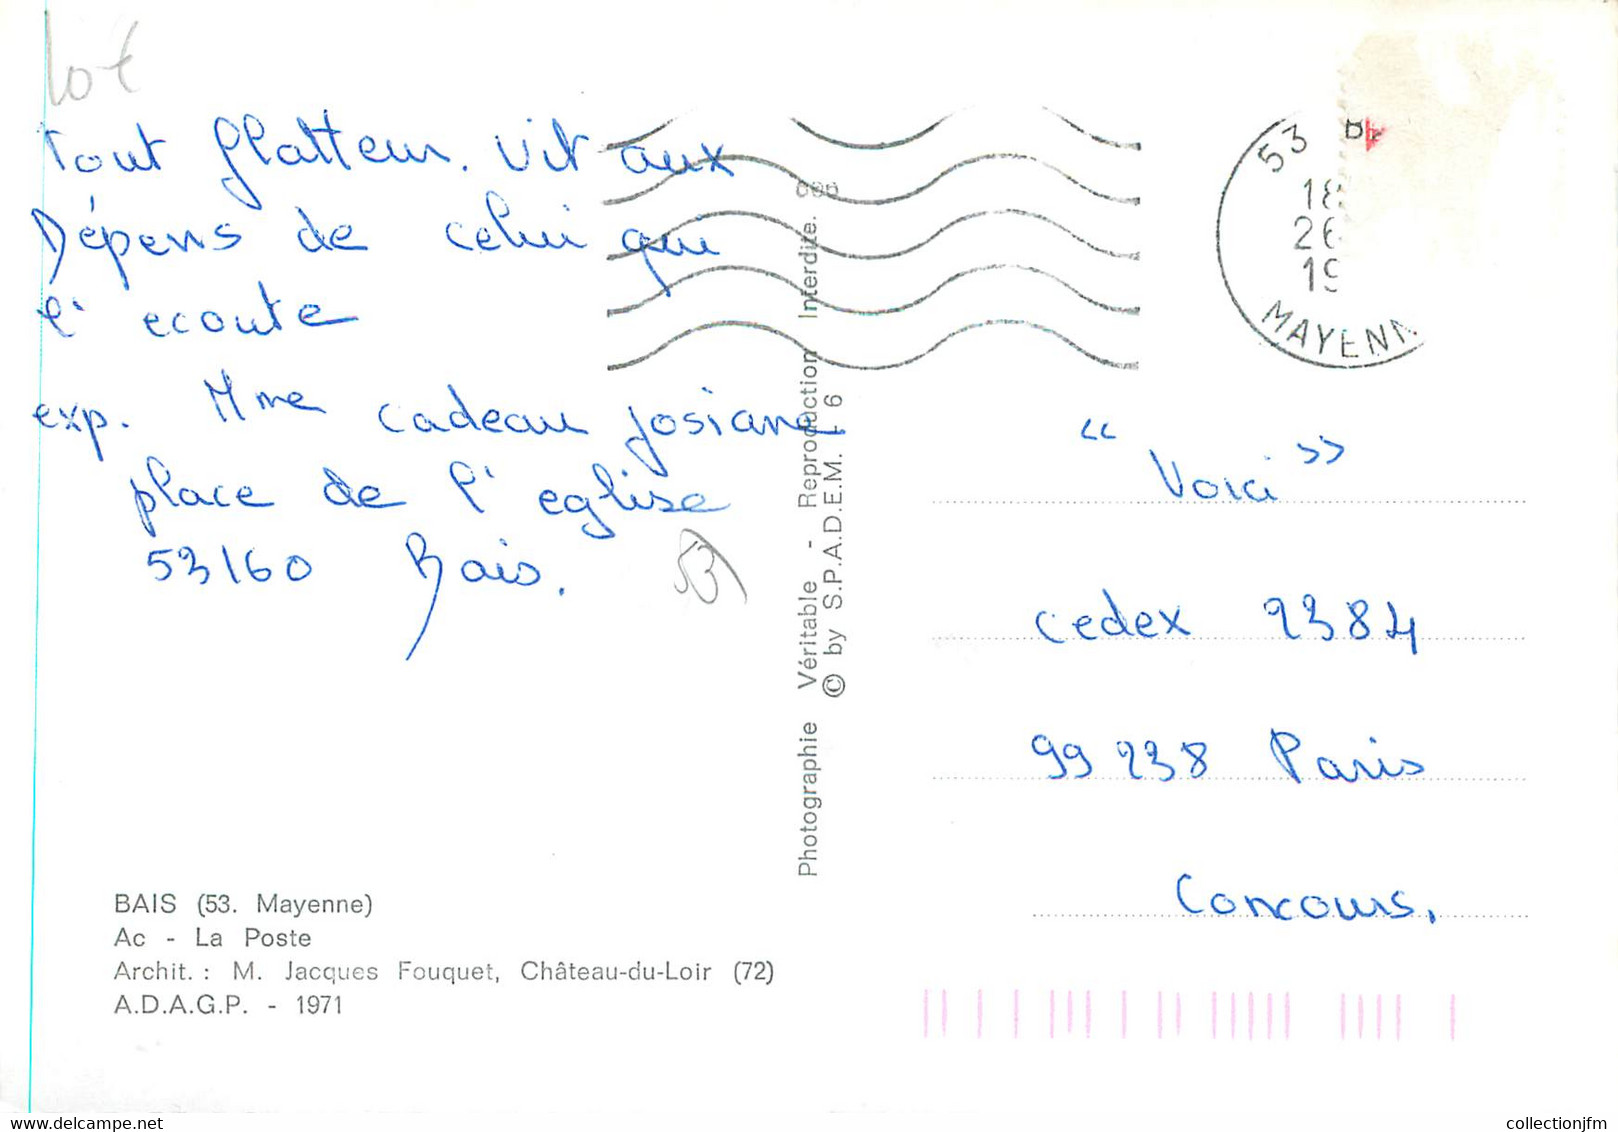 10€
Tout flatteur. vit aux
Dépens de celui qui
l' ecoute
exp. Mme cadeau josiane
place de l' eglise
53160 Bais.
53
BAIS (53. Mayenne)
Ac - La Poste
Archit. : M. Jacques Fouquet, Château-du-Loir (72)
A.D.A.G.P. - 1971
Photographie Véritable - Reproduction Interdite.
© by S.P.A.D.E.M. - 6
53
18
26
19
MAYENN
"Voici"
cedex 2384
99 238 Paris
Concours.
collectionjfm